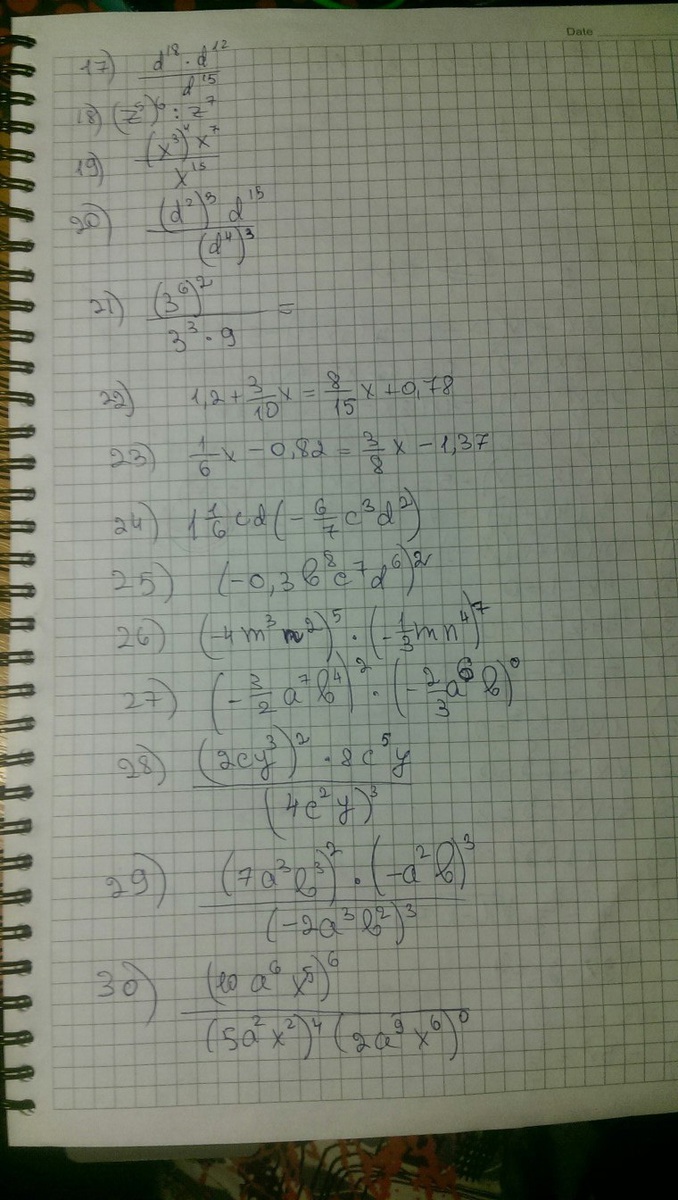 Date
17) d¹⁸ · d¹² / d¹⁵
18) (z⁵)⁶ : z⁷
19) (x³)⁴ x⁷ / x¹⁵
20) (d²)³ d¹⁵ / (d⁴)³
21) (3⁶)² / 3³ · 9 =
22) 1,2 + 3/10 x = 8/15 x + 0,78
23) 1/6 x - 0,82 = 3/8 x - 1,37
24) 1 1/6 cd (- 6/7 c³d²)
25) (-0,3 b⁸c⁷d⁶)²
26) (-4m³n²)⁵ · (- 1/3 mn⁴)⁷
27) (- 3/2 a⁷b⁴)² · (- 2/3 a⁶ b)⁰
28) (2cy³)² · 8c⁵y / (4c²y)³
29) (7a³b³)² · (-a²b)³ / (-2a³b²)³
30) (10a⁶x⁵)⁶ / (5a²x²)⁴ (2a⁹x⁶)⁰